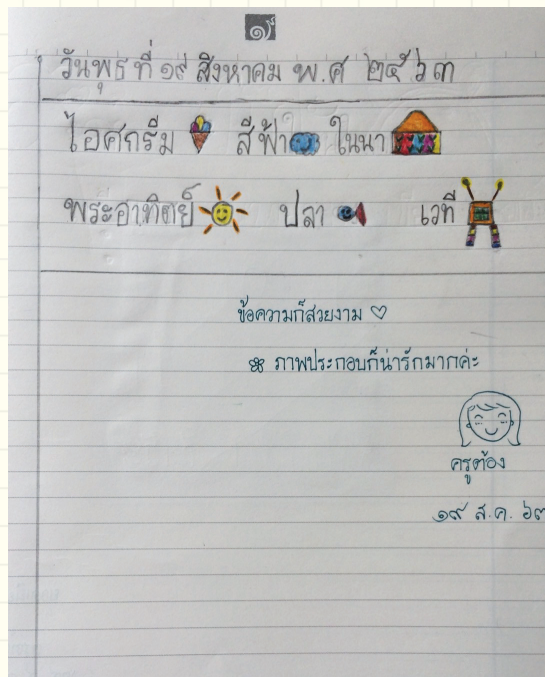 ๑
วันพุธ ที่ ๑๙ สิงหาคม พ.ศ ๒๕๖๓
ไอศกรีม สีฟ้า ในนา
พระอาทิตย์ ปลา เวที
ข้อความก็สวยงาม ♡
ภาพประกอบก็น่ารักมากค่ะ
ครูต้อง
๑๙ ส.ค. ๖๓